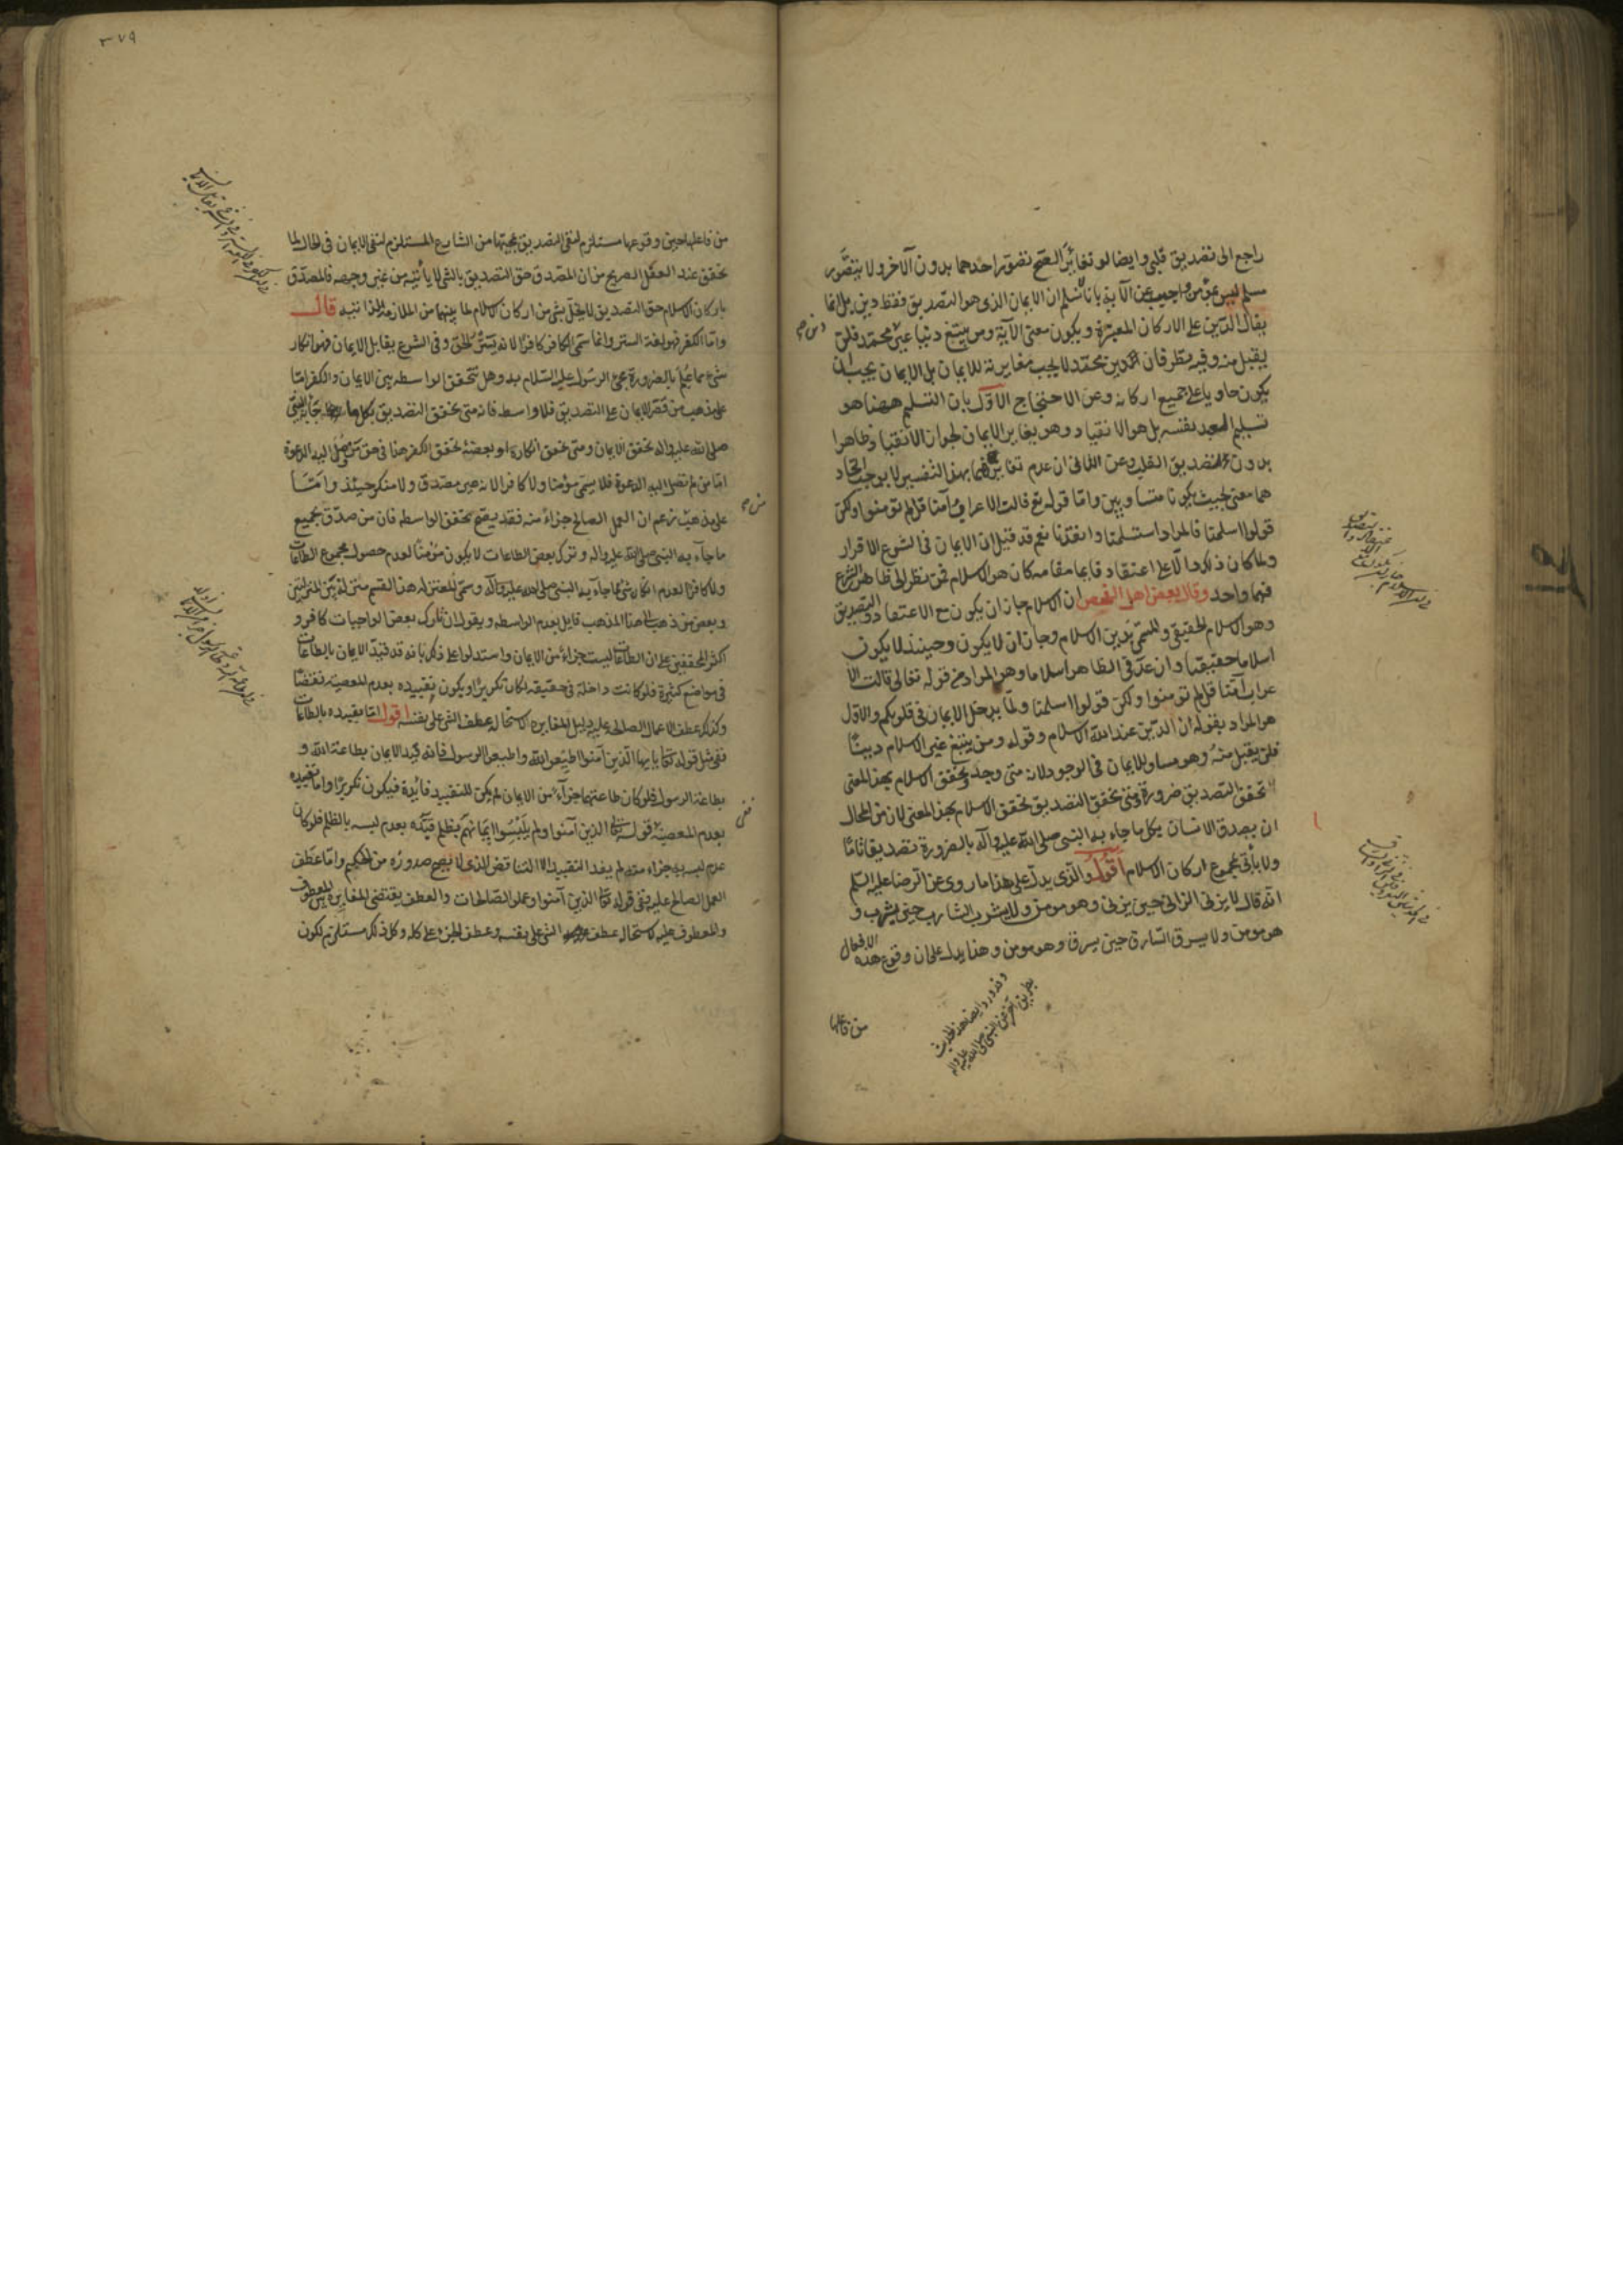 راجع الى تصديق قلبى وايضا لو تغايرا لصح تصور احدهما بدون الآخر ولا يتصور
مسلم ليس بمؤمن واجيب عن الآية بانا نسلم ان الايمان الذى هو التصديق فقط دين بل انما
يقال الدين على الاركان المعتبرة ويكون معنى الآية ومن يبتغ دينا غير محمد فلن
يقبل منه وفيه نظر فان دين محمد لا يجب مغايرته للايمان بل الايمان يجب ان
يكون حاويا على جميع اركانه وعن الاحتجاج الاول بان التسليم ههنا هو
تسليم نفسه بل هو الانقياد وهو يغاير الايمان لجواز الانقياد ظاهرا
بدون التصديق القلبى وعن الثانى ان عدم تغايرهما بهذا التفسير لا يوجب اتحاد
هما معنى بحيث يكونا متساويين واما قوله تع قالت الاعراب آمنا قل لم تؤمنوا ولكن
قولوا اسلمنا فالمراد استسلمنا وانقدنا نعم قد قيل ان الايمان فى الشرع الاقرار
ولما كان ذلك دالا على اعتقاد قايما مقامه كان هو الاسلام فمن نظر الى ظاهر الشرع
فهما واحد وقال بعض اهل ان الاسلام جاز ان يكون مع الاعتقاد والتصديق
وهو الاسلام الحقيقى والمسمى بدين الاسلام وجاز ان لا يكون وحينئذ لا يكون
اسلاما حقيقيا وان عد فى الظاهر اسلاما وهو المراد من قوله تعالى قالت الا
عراب آمنا قل لم تؤمنوا ولكن قولوا اسلمنا ولما يدخل الايمان فى قلوبكم والاول
هو المراد بقوله ان الدين عند الله الاسلام وقوله ومن يبتغ غير الاسلام دينا
فلن يقبل منه وهو مساو للايمان فى الوجود لانه متى وجد وتحقق الاسلام بهذا المعنى
تحقق التصديق ضرورة ومتى تحقق التصديق تحقق الاسلام بهذا المعنى لان من المحال
ان يصدق الانسان بكل ما جاء به النبى صلى الله عليه وآله بالضرورة تصديقا تاما
ولا يأتى بمجموع اركان الاسلام اقول والذى يدل على هذا ما روى عن الرضا عليه السلم
انه قال لا يزنى الزانى حين يزنى وهو مومن ولا يشرب الشارب حين يشرب و
هو مومن ولا يسرق السارق حين يسرق وهو مومن وهذا يدل على ان وقوع هذه الافعال
وقد ورد ايضا هذا الحديث
بطريق آخر عن النبى صلى الله عليه واله
من فاعلها
٣٧٩
من فاعلها حين وقوعها مستلزم لنفى التصديق بمجيئها من الشارع المستلزم لنفى الايمان فى الحال لما
تحقق عند العقل الصريح من ان المصدق حق التصديق بالشئ لا يأتيه من غير وجهه فالمصدق
باركان الاسلام حق التصديق لا يخل بشئ من اركان الاسلام لما بينهما من الملازمة قال
واما الكفر فهو لغة الستر وانما سمى الكافر كافرا لانه يستر الحق وفى الشرع يقابل الايمان فهو انكار
شئ مما علم بالضرورة مجئ الرسول عليه السلام به وهل تتحقق الواسطة بين الايمان والكفر اما
على مذهب من قصر الايمان على التصديق فلا واسطة فانه متى تحقق التصديق بكل ما جاء به النبى
صلى الله عليه واله تحقق الايمان ومتى تحقق انكاره او بعضه تحقق الكفر هذا فى حق من وصل اليه الدعوة
اما من لم تصل اليه الدعوة فلا يسمى مؤمنا ولا كافرا لانه غير مصدق ولا منكر حينئذ واما
على مذهب من زعم ان العمل الصالح جزاء منه فقد يقع تحقق الواسطة فان من صدق بجميع
ما جاء به النبى صلى الله عليه واله وترك بعض الطاعات لا يكون مؤمنا لعدم حصول مجموع الطاعات
ولا كافرا لعدم انكار شئ مما جاء به النبى صلى الله عليه وآله وسمى المعتزلة هذا القسم منزلة بين المنزلتين
وبعض من ذهب الى هذا المذهب قايل بعدم الواسطة ويقول ان تارك بعض الواجبات كافر و
اكثر المحققين على ان الطاعات ليست جزاء من الايمان واستدلوا على ذلك بانه قد قيد الايمان بالطاعات
فى مواضع كثيرة فلو كانت داخلة فى حقيقته لكان تكريرا ويكون تقييده بعدم المعصية نقضا
وكذلك عطف الاعمال الصالحة عليه دليل المغايرة لاستحالة عطف الشئ على نفسه اقول اما تقييده بالطاعات
ففى مثل قوله تعالى يا ايها الذين آمنوا اطيعوا الله واطيعوا الرسول فانه قيد الايمان بطاعة الله و
بطاعة الرسول فلو كان طاعتهما جزاء من الايمان لم يكن للتقييد فائدة فيكون تكريرا واما تقييده
بعدم المعصية قوله تعالى الذين آمنوا ولم يلبسوا ايمانهم بظلم قيده بعدم لبسه بالظلم فلو كان
عدم لبسه به جزاء منه لم يفد التقييد الا التناقض الذى لا يصح صدوره من الحكيم واما عطف
العمل الصالح عليه ففى قوله تعالى الذين آمنوا وعملوا الصالحات والعطف يقتضى المغايرة بين المعطوف
والمعطوف عليه لاستحالة عطف الشئ على نفسه وعطف الجزء على كله وكل ذلك مستلزم لكون